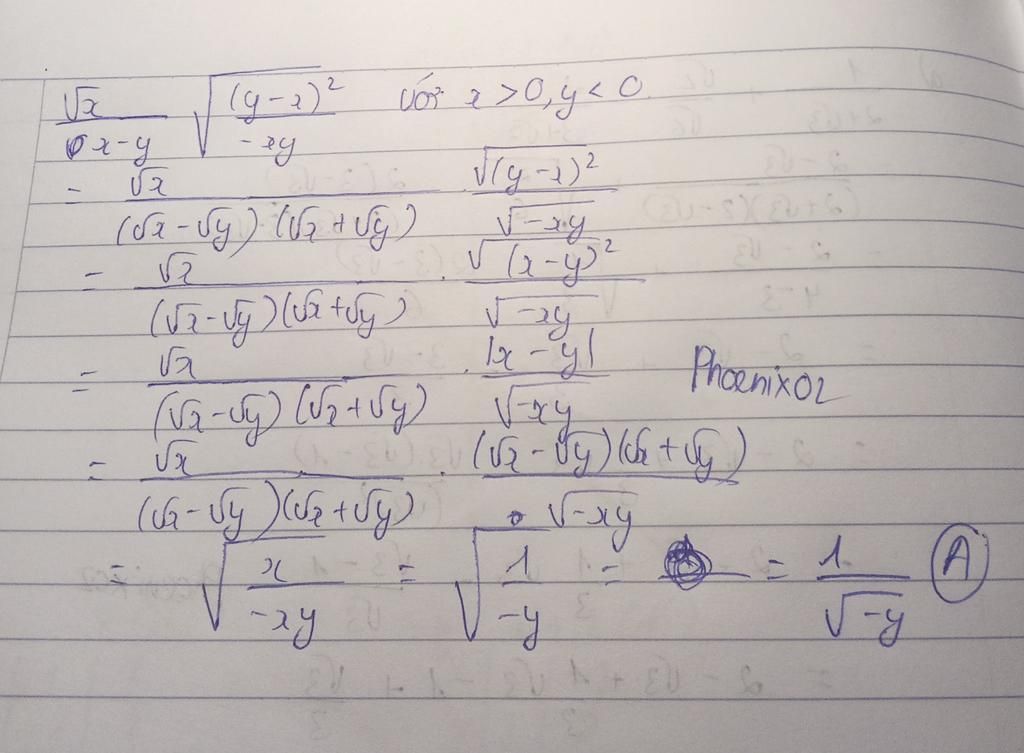 √x/(x-y) √((y-x)²/(-xy)) với x > 0, y < 0
= √x/((√x-√y)(√x+√y)) . √(y-x)²/√-xy
= √x/((√x-√y)(√x+√y)) . √(x-y)²/√-xy
= √x/((√x-√y)(√x+√y)) . |x-y|/√-xy
Phoenix02
= √x/((√x-√y)(√x+√y)) . (√x-√y)(√x+√y)/√-xy
= √(x/(-xy)) = √(1/(-y)) = = 1/√-y A